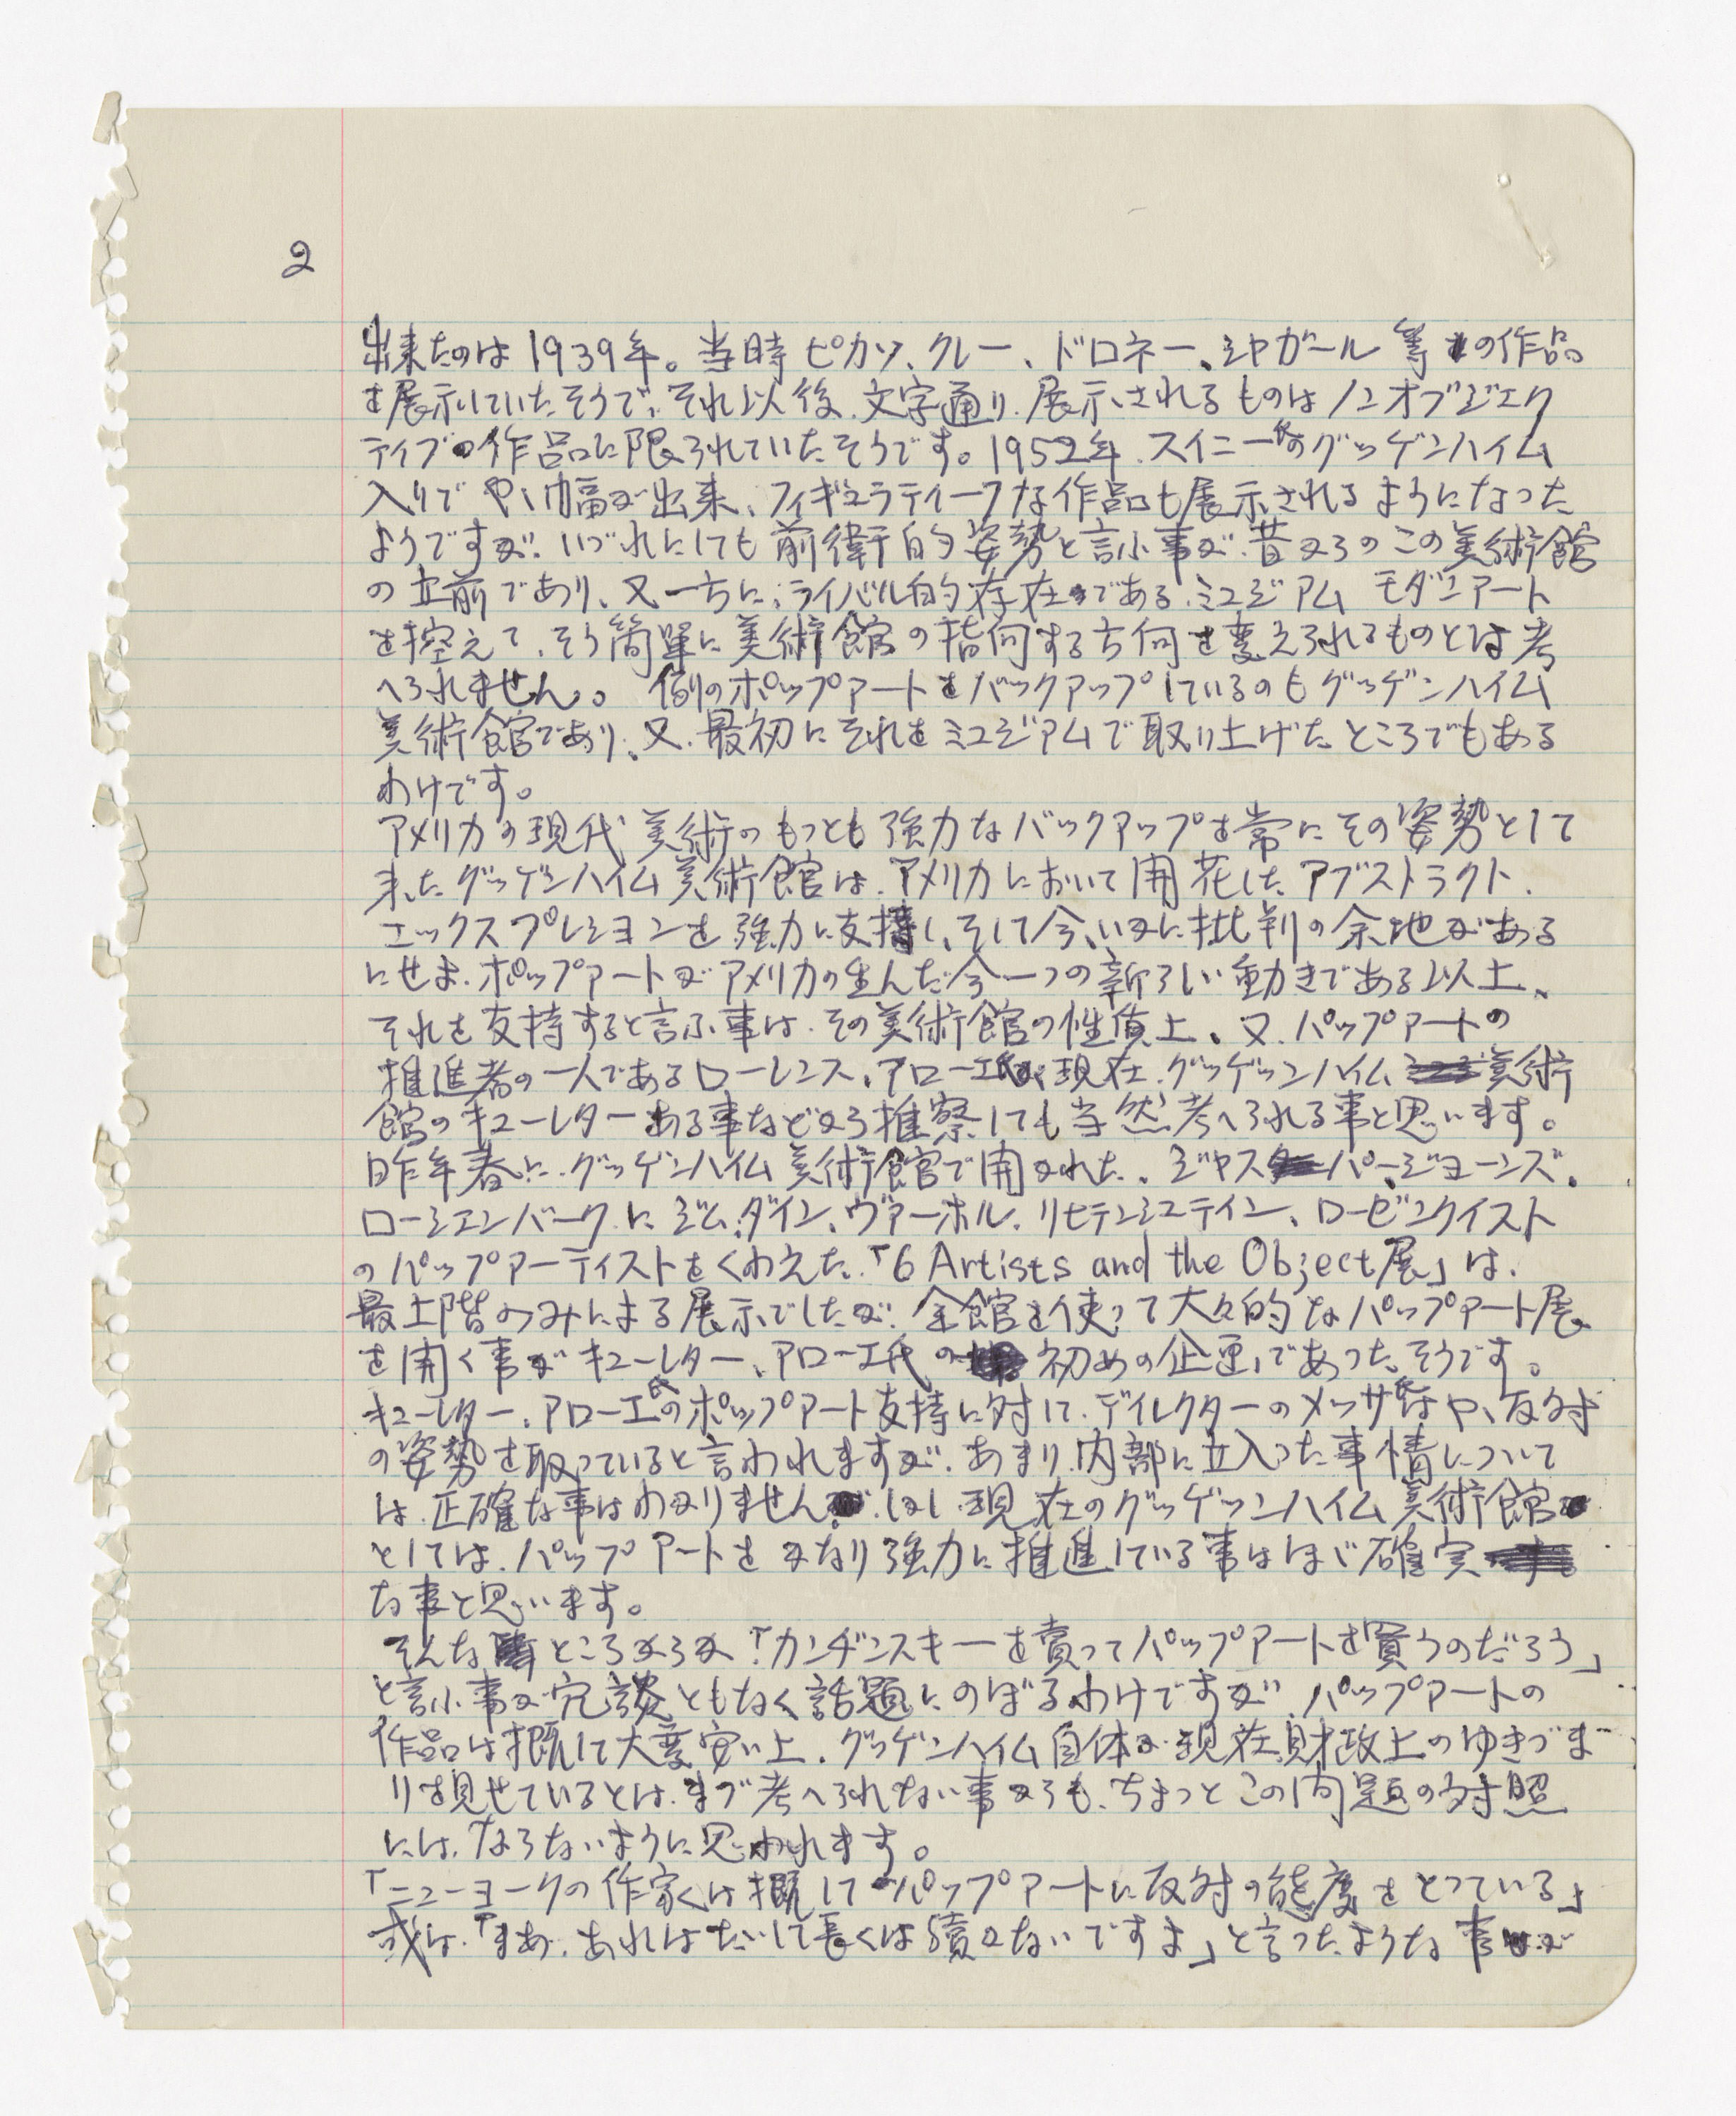 2
出来たのは1939年。当時ピカソ、クレー、ドロネー、シャガール等の作品
を展示していたそうで、それ以後、文字通り、展示されるものはノンオブジェク
ティブの作品に限られていたそうです。1952年、スイニー氏のグッゲンハイム
入りでやゝ巾幅が出来、フィギュラティーフな作品も展示されるようになった
ようですが、いづれにしても前衛的姿勢と言ふ事が、昔からのこの美術館
の立前であり、又一方に、ライバル的存在である、ミュジアム モダンアート
を控えて、そう簡単に美術館の指向する方向を変えられるものとは考
へられません。例のポップアートをバックアップしているのもグッゲンハイム
美術館であり、又、最初にそれをミュジアムで取り上げたところでもある
わけです。
アメリカの現代美術のもっとも強力なバックアップを常にその姿勢として
来たグッゲンハイム美術館は、アメリカにおいて開花したアブストラクト、
エックスプレションを強力に支持し、そして今、いかに批判の余地がある
にせよ、ポップアートがアメリカの生んだ今一つの新らしい動きである以上、
それを支持すると言ふ事は、その美術館の性質上、又、パップアートの
推進者の一人であるローレンス、アローエ氏が、現在、グッゲッンハイム美術
館のキューレターある事などから推察しても当然考へられる事と思います。
昨年春に、グッゲンハイム美術館で開かれた、ジャスパージョーンズ、
ローシェンバークに ジム、ダイン、ヴァーホル、リヒテンシュティン、ローゼンクイスト
のパップアーティストをくわえた、「6 Artists and the Object展」は、
最上階のみによる展示でしたが、全館を使って大々的なパップアート展
を開く事がキューレター、アローエ氏の初めの企画であったそうです。
キューレター、アローエ氏のポップアート支持に対して、ディレクターのメッサ氏はやゝ反対
の姿勢を取っていると言われますが、あまり内部に立入った事情について
は、正確な事はわかりません。しかし、現在のグッゲッンハイム美術館
としては、パップアートをかなり強力に推進している事はほゞ確実
な事と思います。
そんなところからか、「カンヂンスキーを売ってパップアートを買うのだろう」
と言ふ事が冗談ともなく話題にのぼるわけですが、パップアートの
作品は概して大変安い上、グッゲンハイム自体が現在財政上のゆきづま
りを見せているとは、まづ考へられない事からも、ちょっとこの問題の対照
には、ならないように思われます。
「ニューヨークの作家は概してパップアートに反対の態度をとっている」
或は、「まあ、あれはたいして長くは続かないですよ」と言ったような事が